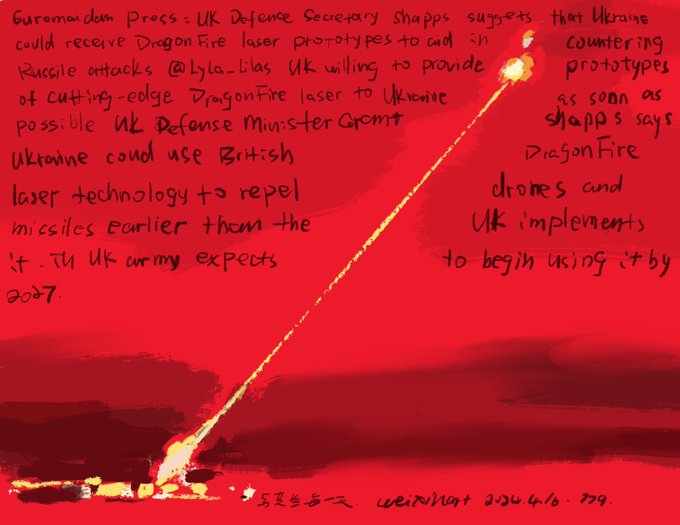 Euromaidan Press: UK Defence Secretary Shapps suggests that Ukraine
could receive DragonFire laser prototypes to aid in countering
Russile attacks. @Lyla_lilas UK willing to provide prototypes
of cutting-edge DragonFire laser to Ukraine as soon as
possible UK Defense Minister Grant Shapps says
Ukraine coud use British DragonFire
laser technology to repel drones and
missiles earlier than the UK implements
it. Th UK army expects to begin using it by
2027.
2024.4.16. 779.